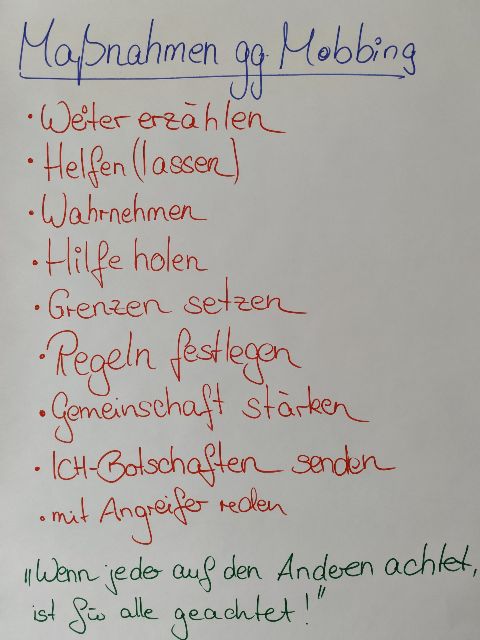 Maßnahmen gg. Mobbing
• Weiter erzählen
• Helfen (lassen)
• Wahrnehmen
• Hilfe holen
• Grenzen setzen
• Regeln festlegen
• Gemeinschaft stärken
• ICH-Botschaften senden
• mit Angreifer reden
„Wenn jeder auf den Anderen achtet,
ist für alle geachtet!"